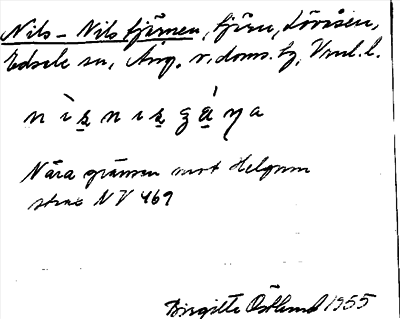 Nils-Nilstjärnen, tjärn, Lövåsen,
Edsele sn, Ång. v. doms. tg, Vnrl. l.
nı̀s̱nıs̱gá̱ŋa
Nära gränsen mot Helgum
strax NV 469
Birgitta Östlund 1955